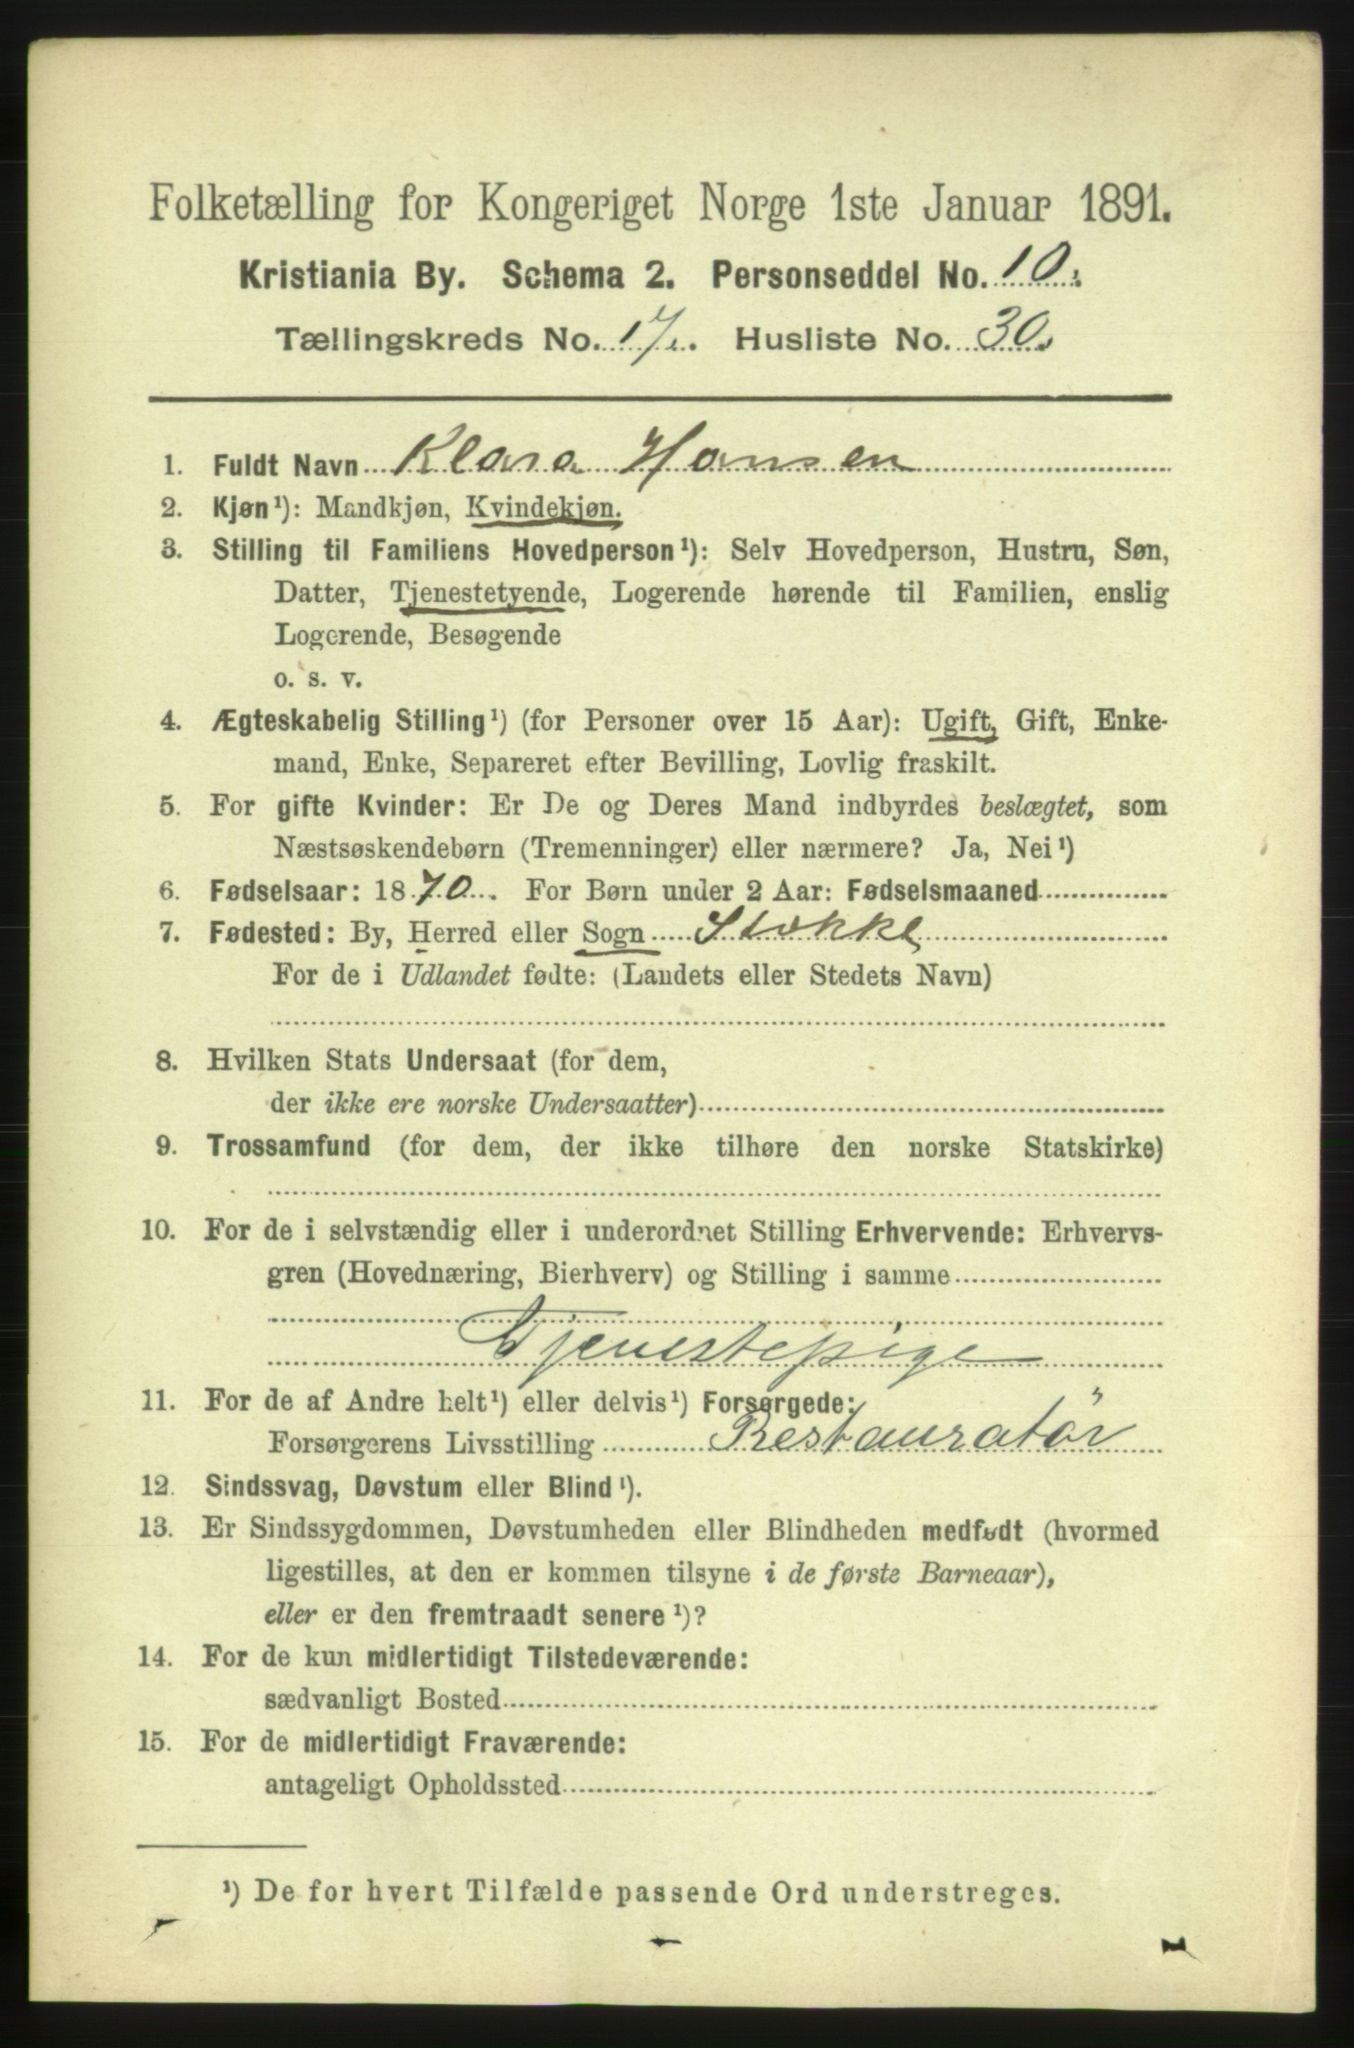 Folketælling for Kongeriget Norge 1ste Januar 1891.
Kristiania By. Schema 2. Personseddel No. 10.
Tællingskreds No. 17. Husliste No. 30.
1. Fuldt Navn Klara Hansen
2. Kjøn¹): Mandkjøn, Kvindekjøn.
3. Stilling til Familiens Hovedperson¹): Selv Hovedperson, Hustru, Søn,
Datter, Tjenestetyende, Logerende hørende til Familien, enslig
Logerende, Besøgende
o. s. v.
4. Ægteskabelig Stilling¹) (for Personer over 15 Aar): Ugift, Gift, Enke-
mand, Enke, Separeret efter Bevilling, Lovlig fraskilt.
5. For gifte Kvinder: Er De og Deres Mand indbyrdes beslægtet, som
Næstsøskendebørn (Tremenninger) eller nærmere? Ja, Nei¹)
6. Fødselsaar: 1870. For Børn under 2 Aar: Fødselsmaaned
7. Fødested: By, Herred eller Sogn Stokke
For de i Udlandet fødte: (Landets eller Stedets Navn)
8. Hvilken Stats Undersaat (for dem,
der ikke ere norske Undersaatter)
9. Trossamfund (for dem, der ikke tilhøre den norske Statskirke)
10. For de i selvstændig eller i underordnet Stilling Erhvervende: Erhvervs-
gren (Hovednæring, Bierhverv) og Stilling i samme
Tjenestepige
11. For de af Andre helt¹) eller delvis¹) Forsørgede:
Forsørgerens Livsstilling Restauratör
12. Sindssvag, Døvstum eller Blind¹).
13. Er Sindssygdommen, Døvstumheden eller Blindheden medfødt (hvormed
ligestilles, at den er kommen tilsyne i de første Barneaar),
eller er den fremtraadt senere¹)?
14. For de kun midlertidigt Tilstedeværende:
sædvanligt Bosted
15. For de midlertidigt Fraværende:
antageligt Opholdssted
¹) De for hvert Tilfælde passende Ord understreges.